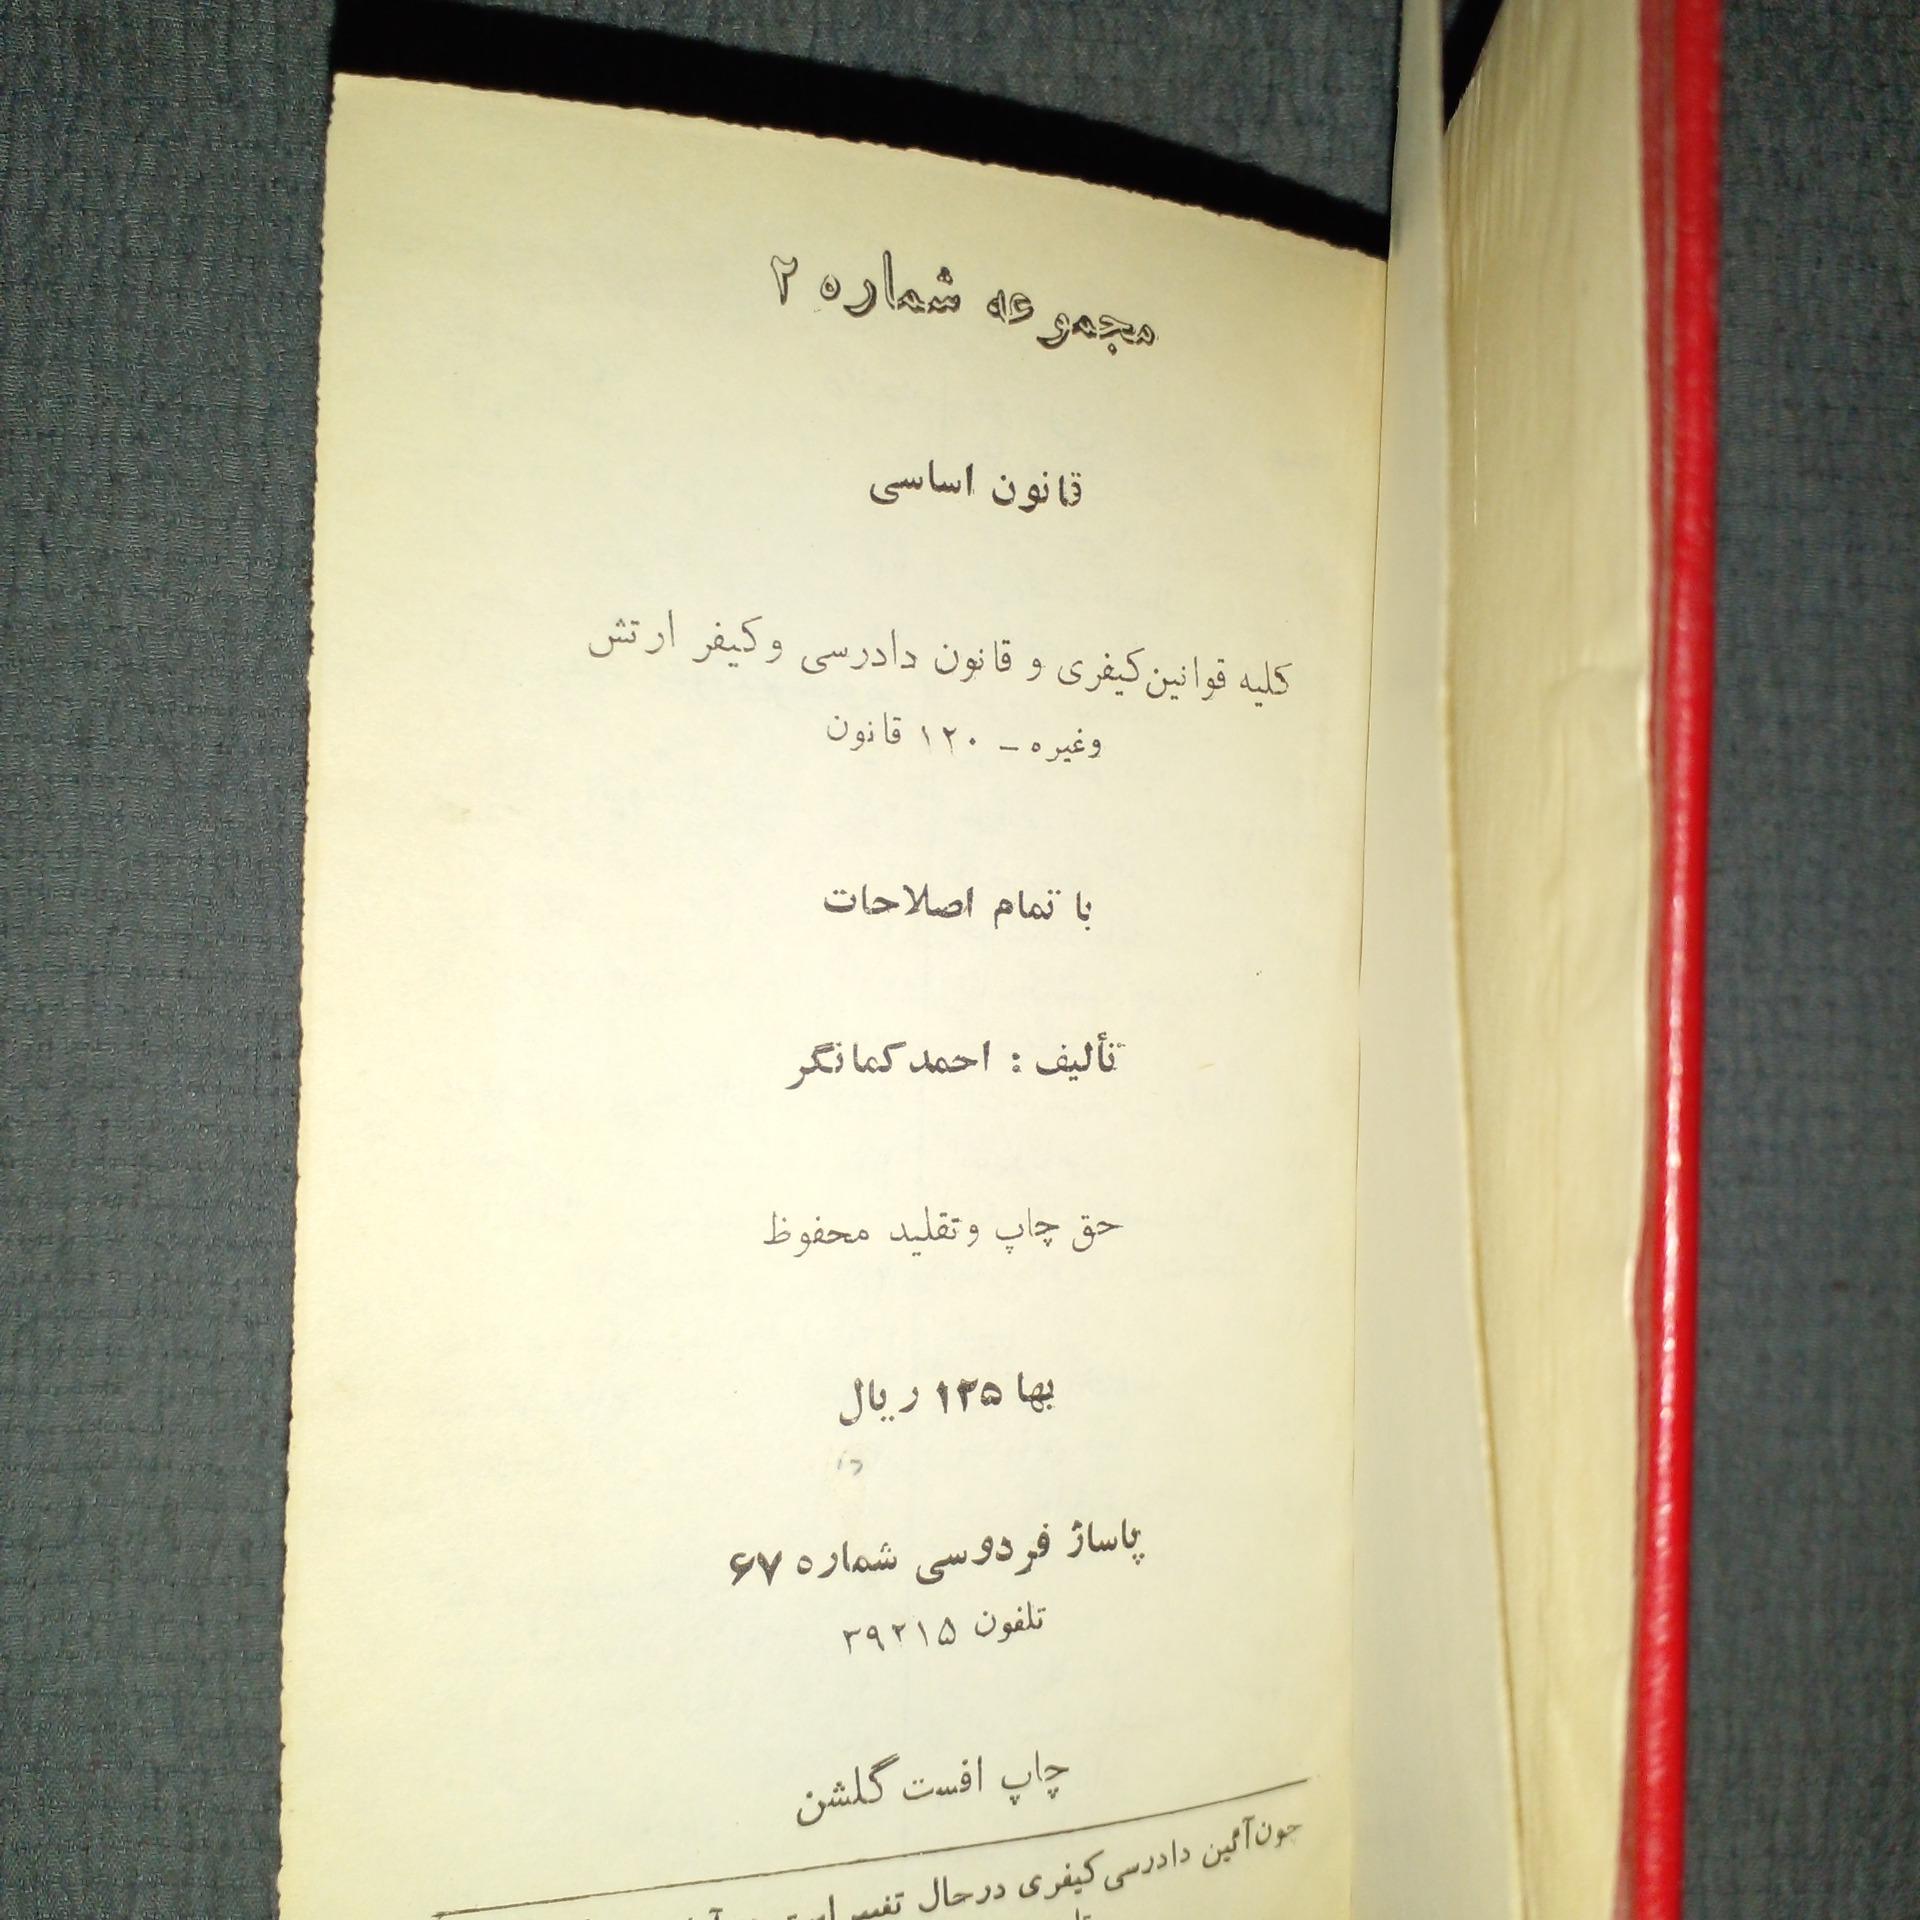 مجموعه شماره ۲
قانون اساسی
کلیه قوانین کیفری و قانون دادرسی و کیفر ارتش
وغیره ـ ۱۲۰ قانون
با تمام اصلاحات
تألیف : احمد کمانگر
حق چاپ و تقلید محفوظ
بها ۱۲۵ ریال
پاساژ فردوسی شماره ۶۷
تلفون ۳۹۲۱۵
چاپ افست گلشن
چون آئین دادرسی کیفری در حال تغییر است